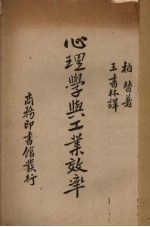 柏替著
王書林譯
心理學與工業效率
商務印書館發行